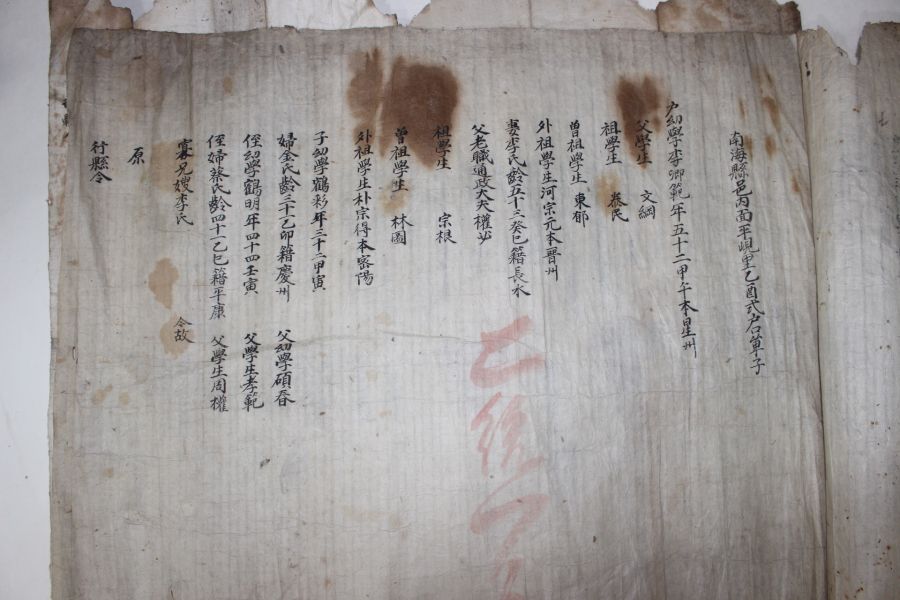 南海縣邑丙面平峴里乙酉式户口單子
户幼學李卿範年五十二甲午本星州
父學生 文綱
祖學生 民
曽祖學生 東郁
外祖學生河宗元本晋州
妻李氏齡五十三癸巳籍長水
父老職通政大夫權
祖學生 宗根
曽祖學生 林圖
外祖學生朴宗得本密陽
子幼學鶴彩年三十二甲寅
婦金氏齡三十一乙卯籍慶州 父幼學碩春
侄幼學鶴明年四十四壬寅 父學生孝範
侄婦蔡氏齡四十一乙巳籍平康 父學生周權
寡兄嫂李氏 今故
原
行縣令
七統一